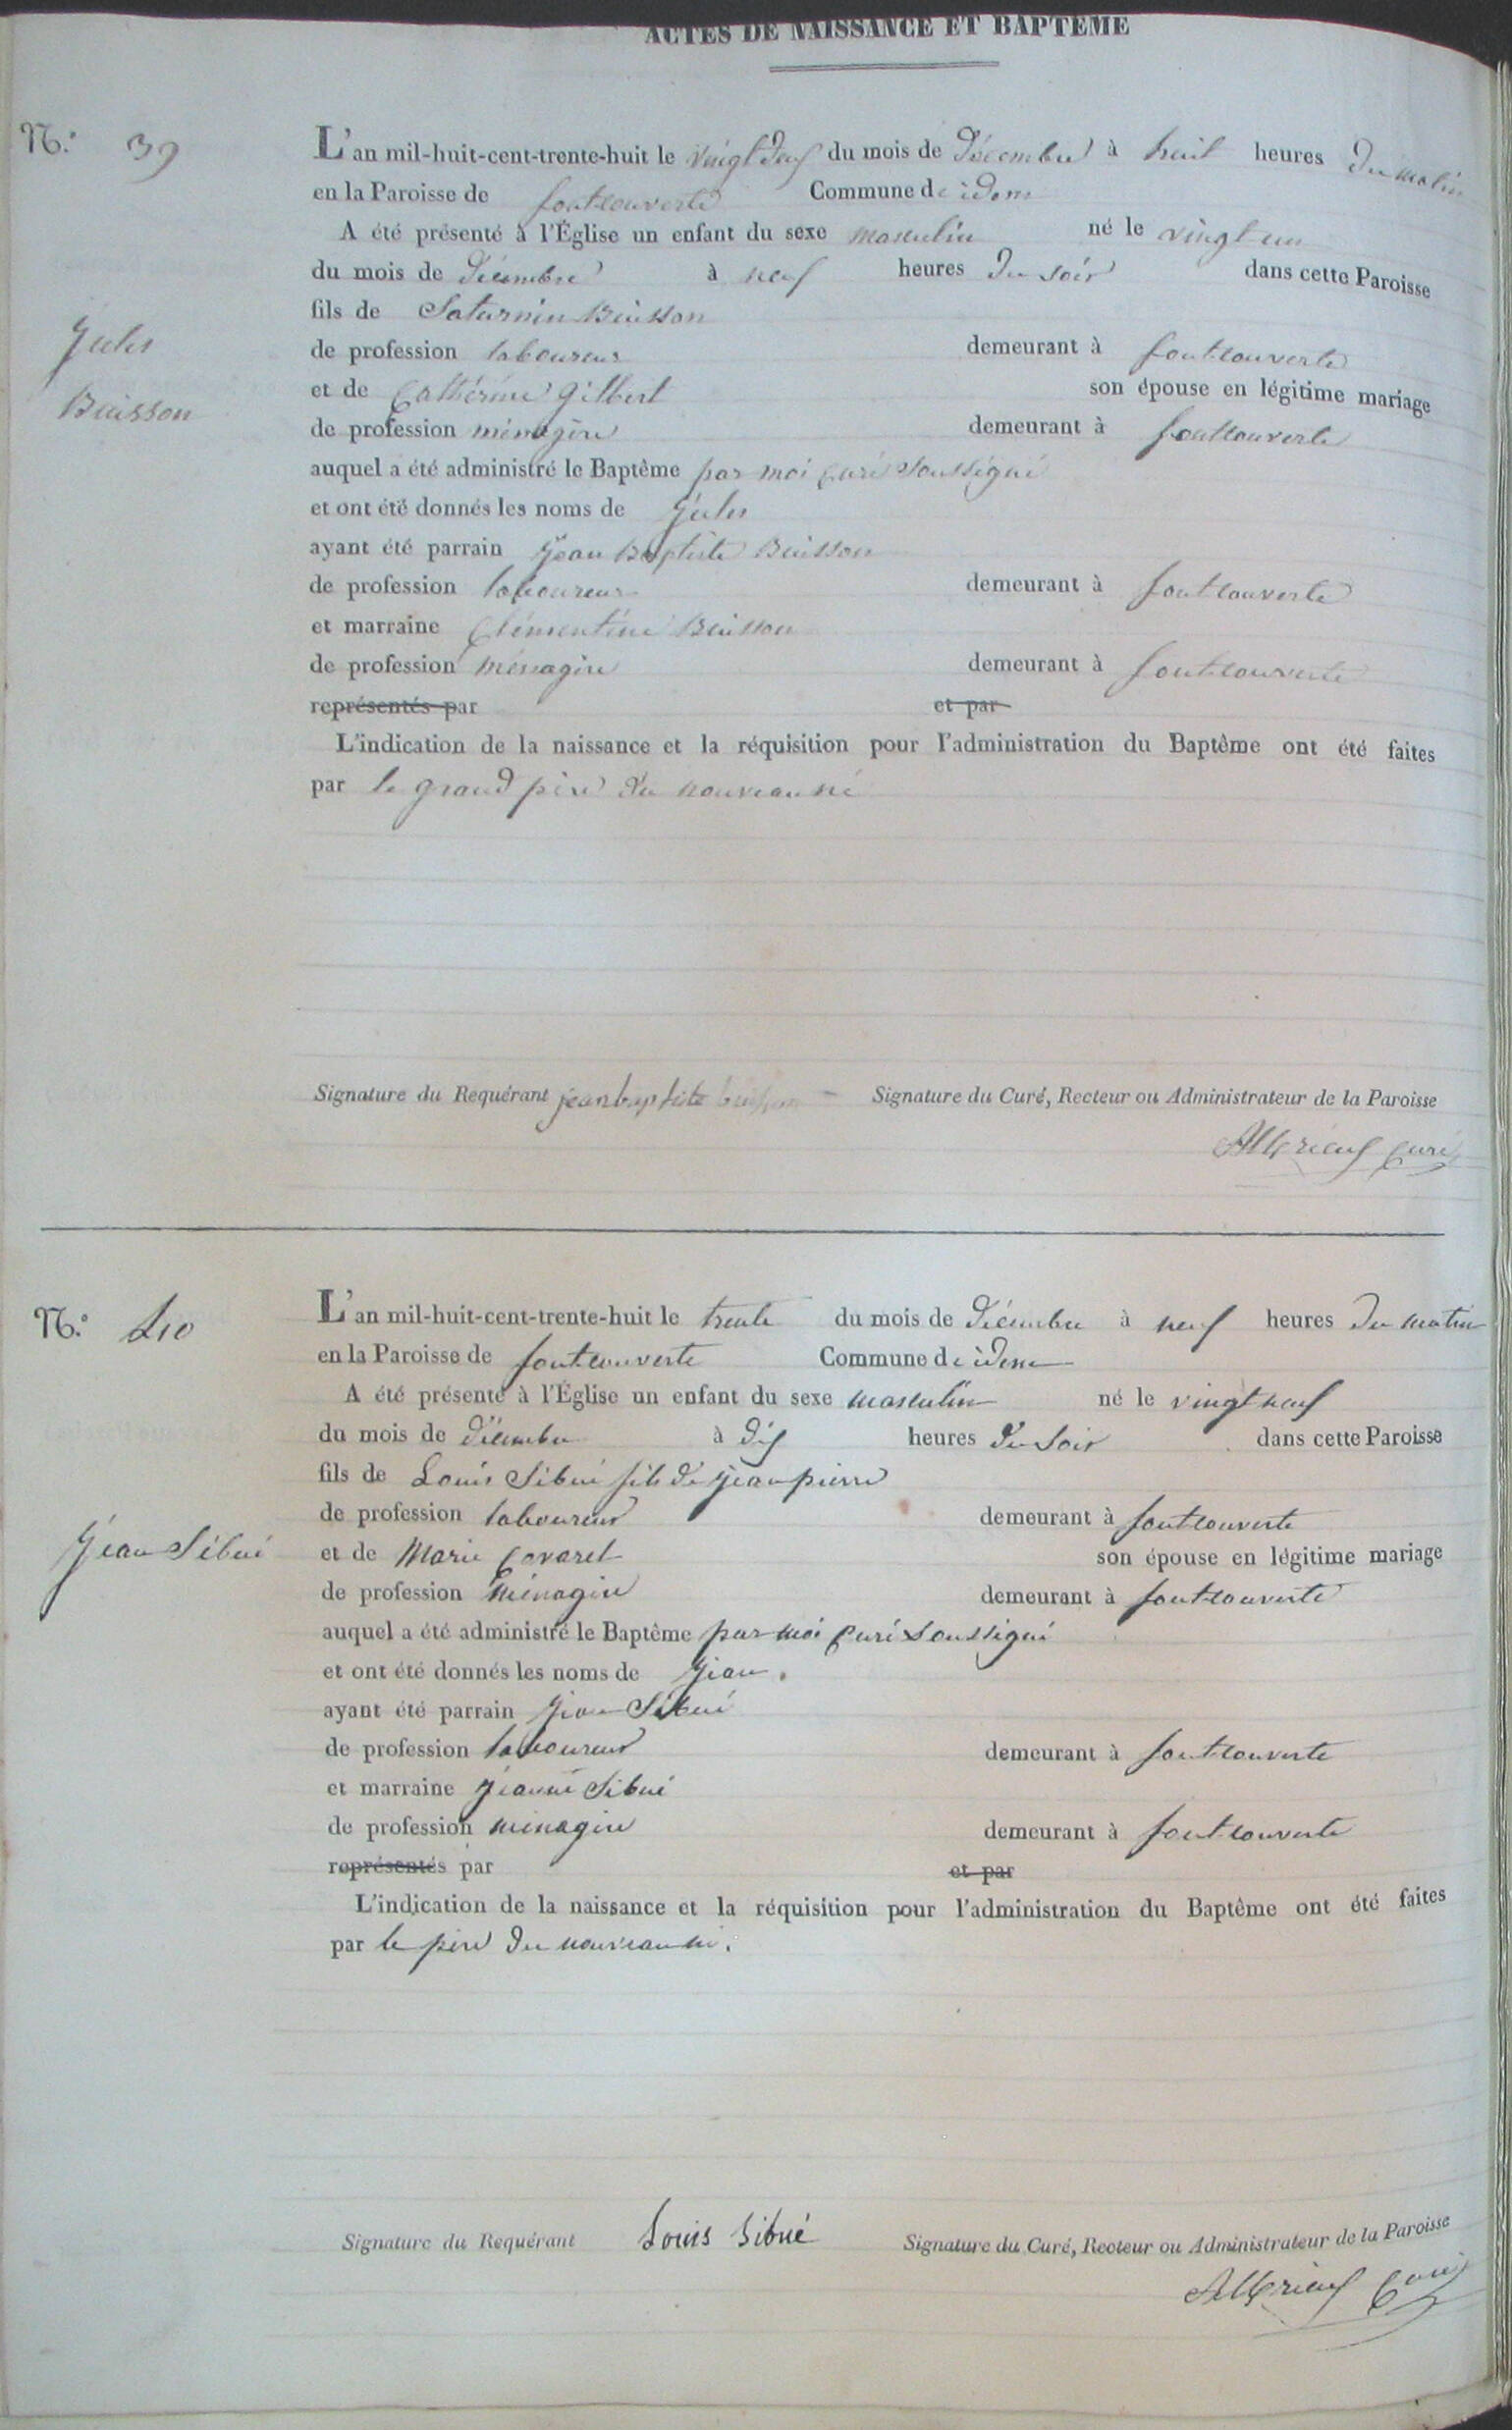 ACTES DE NAISSANCE ET BAPTÊME
N.º 39
L'an mil-huit-cent-trente-huit le vingt deux du mois de Décembre à huit heures du matin
en la Paroisse de fontcouverte Commune de idem
A été présenté à l'Église un enfant du sexe masculin né le vingt un
du mois de décembre à neuf heures du soir dans cette Paroisse
fils de Saturnin Buisson
de profession laboureur demeurant à fontcouverte
Jules
Buisson
et de Cathérine gilbert son épouse en légitime mariage
de profession ménagère demeurant à fontcouverte
auquel a été administré le Baptême par moi curé soussigné
et ont été donnés les noms de jules
ayant été parrain jean Baptiste Buisson
de profession laboureur demeurant à fontcouverte
et marraine Clémentine Buisson
de profession ménagère demeurant à fontcouverte
représentés par et par
L'indication de la naissance et la réquisition pour l'administration du Baptême ont été faites
par le grand père du nouveau né
Signature du Requérant jean baptiste buisson Signature du Curé, Recteur ou Administrateur de la Paroisse
curé
N.º 40
L'an mil-huit-cent-trente-huit le trente du mois de décembre à neuf heures du matin
en la Paroisse de fontcouverte Commune de idem
A été présenté à l'Église un enfant du sexe masculin né le vingt neuf
du mois de décembre à dix heures du soir dans cette Paroisse
fils de Louis Sibué fils de jean pierre
de profession laboureur demeurant à fontcouverte
jean Sibué
et de Marie Covarel son épouse en légitime mariage
de profession ménagère demeurant à fontcouverte
auquel a été administré le Baptême par moi curé soussigné
et ont été donnés les noms de jean.
ayant été parrain jean Sibué
de profession laboureur demeurant à fontcouverte
et marraine jeanne Sibué
de profession ménagère demeurant à fontcouverte
représentés par et par
L'indication de la naissance et la réquisition pour l'administration du Baptême ont été faites
par le père du nouveau né.
Signature du Requérant Louis Sibué Signature du Curé, Recteur ou Administrateur de la Paroisse
curé